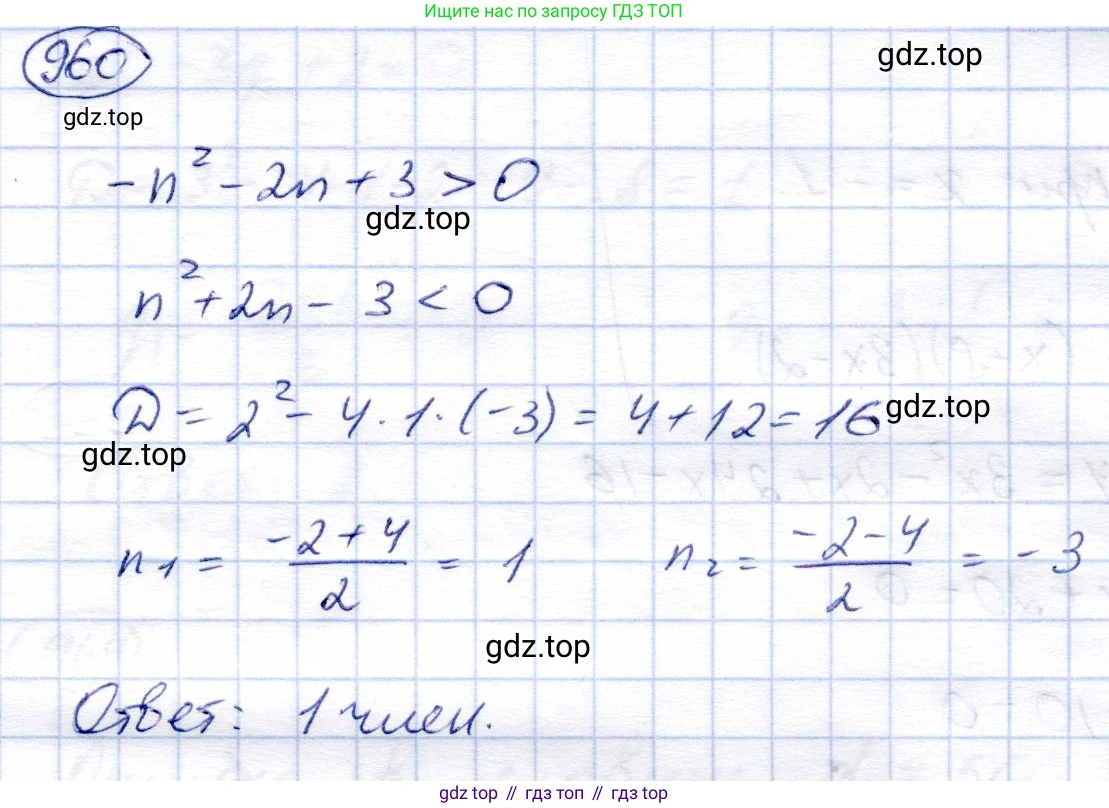 Ищите нас по запросу ГДЗ ТОП
960
gdz.top
gdz.top
-n² - 2n + 3 > 0
gdz.top
n² + 2n - 3 < 0
D = 2² - 4 · 1 · (-3) = 4 + 12 = 16
gdz.top
gdz.top
n₁ = (-2 + 4)/2 = 1 n₂ = (-2 - 4)/2 = -3
gdz.top
Ответ: 1 член.
gdz.top // гдз топ // гдз top